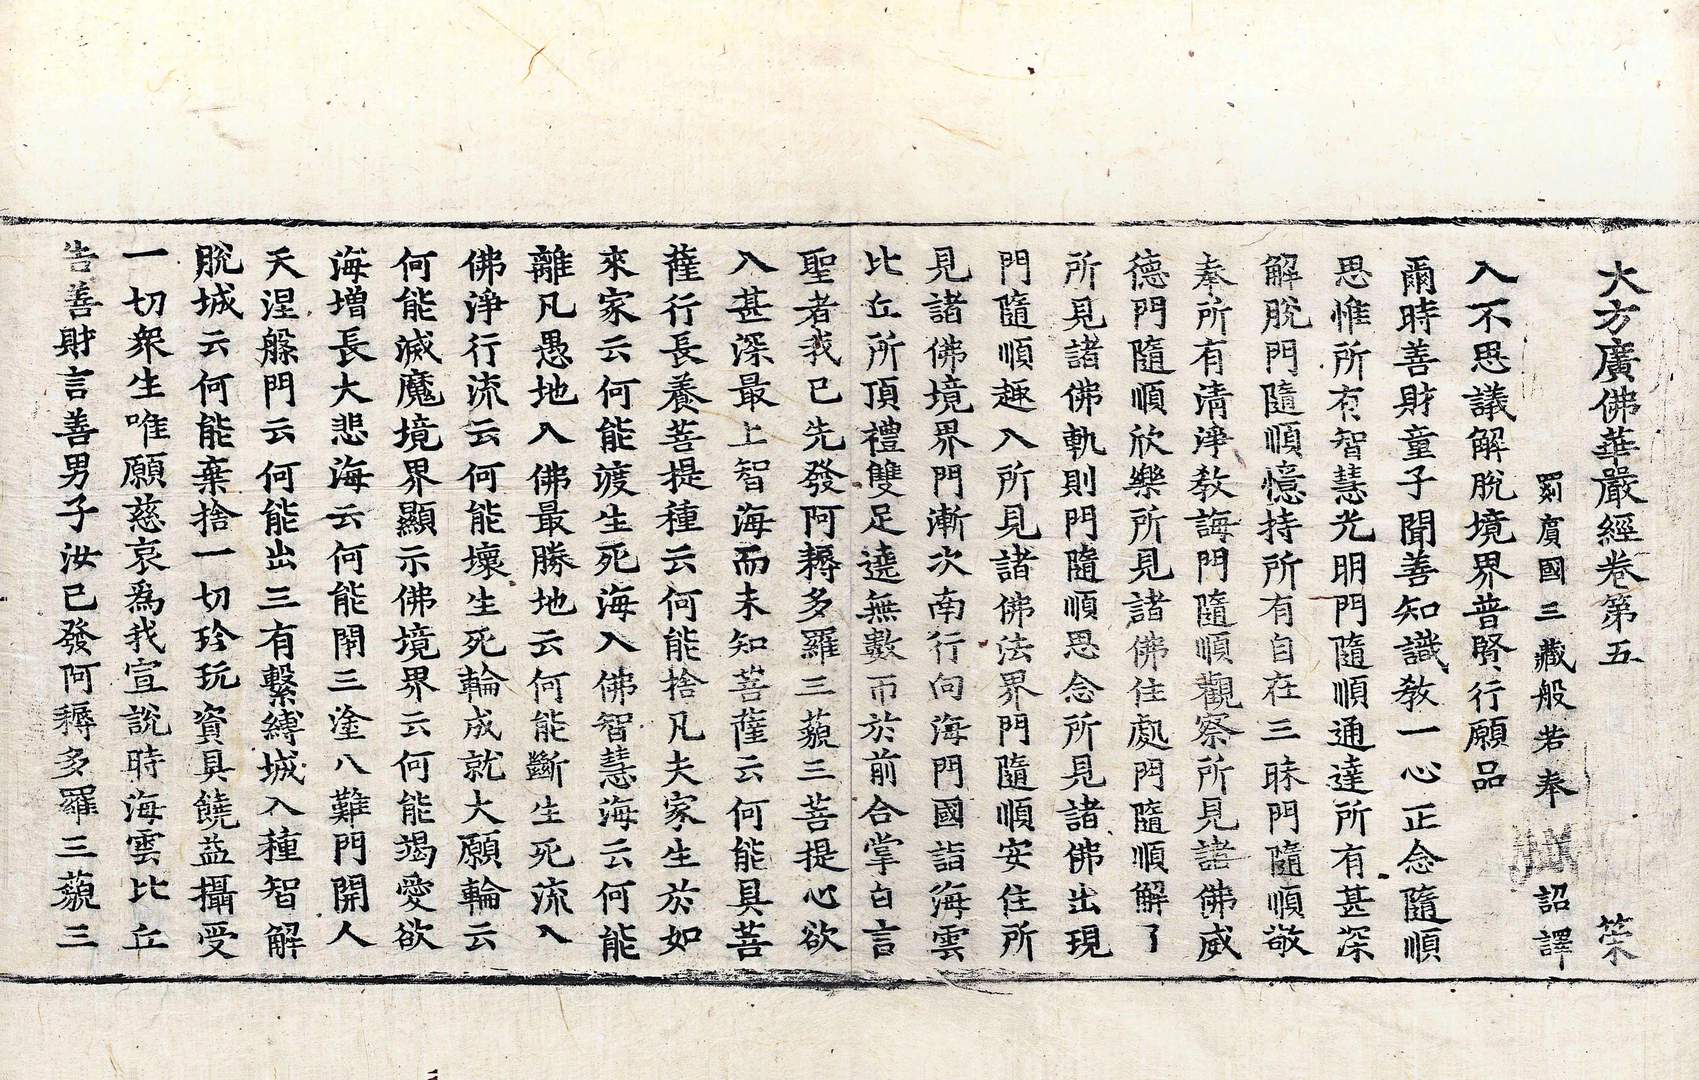 大方廣佛華嚴經卷第五 䇿
罽賓國三藏般若奉 詔譯
入不思議解脫境界普賢行願品
爾時善財童子聞善知識教一心正念隨順
思惟所有智慧光明門隨順通達所有甚深
解脫門隨順憶持所有自在三昧門隨順敬
奉所有清淨教誨門隨順觀察所見諸佛威
德門隨順欣樂所見諸佛住處門隨順解了
所見諸佛軌則門隨順思念所見諸佛出現
門隨順趣入所見諸佛法界門隨順安住所
見諸佛境界門漸次南行向海門國詣海雲
比丘所頂禮雙足遶無數帀於前合掌白言
聖者我已先發阿耨多羅三藐三菩提心欲
入甚深最上智海而未知菩薩云何能具菩
薩行長養菩提種云何能捨凡夫家生於如
來家云何能渡生死海入佛智慧海云何能
離凡愚地入佛最勝地云何能斷生死流入
佛淨行流云何能壞生死輪成就大願輪云
何能滅魔境界顯示佛境界云何能竭愛欲
海增長大悲海云何能閇三塗八難門開人
天涅槃門云何能出三有繫縛城入種智解
脫城云何能棄捨一切珍玩資具饒益攝受
一切眾生唯願慈哀爲我宣說時海雲比丘
告善財言善男子汝已發阿耨多羅三藐三